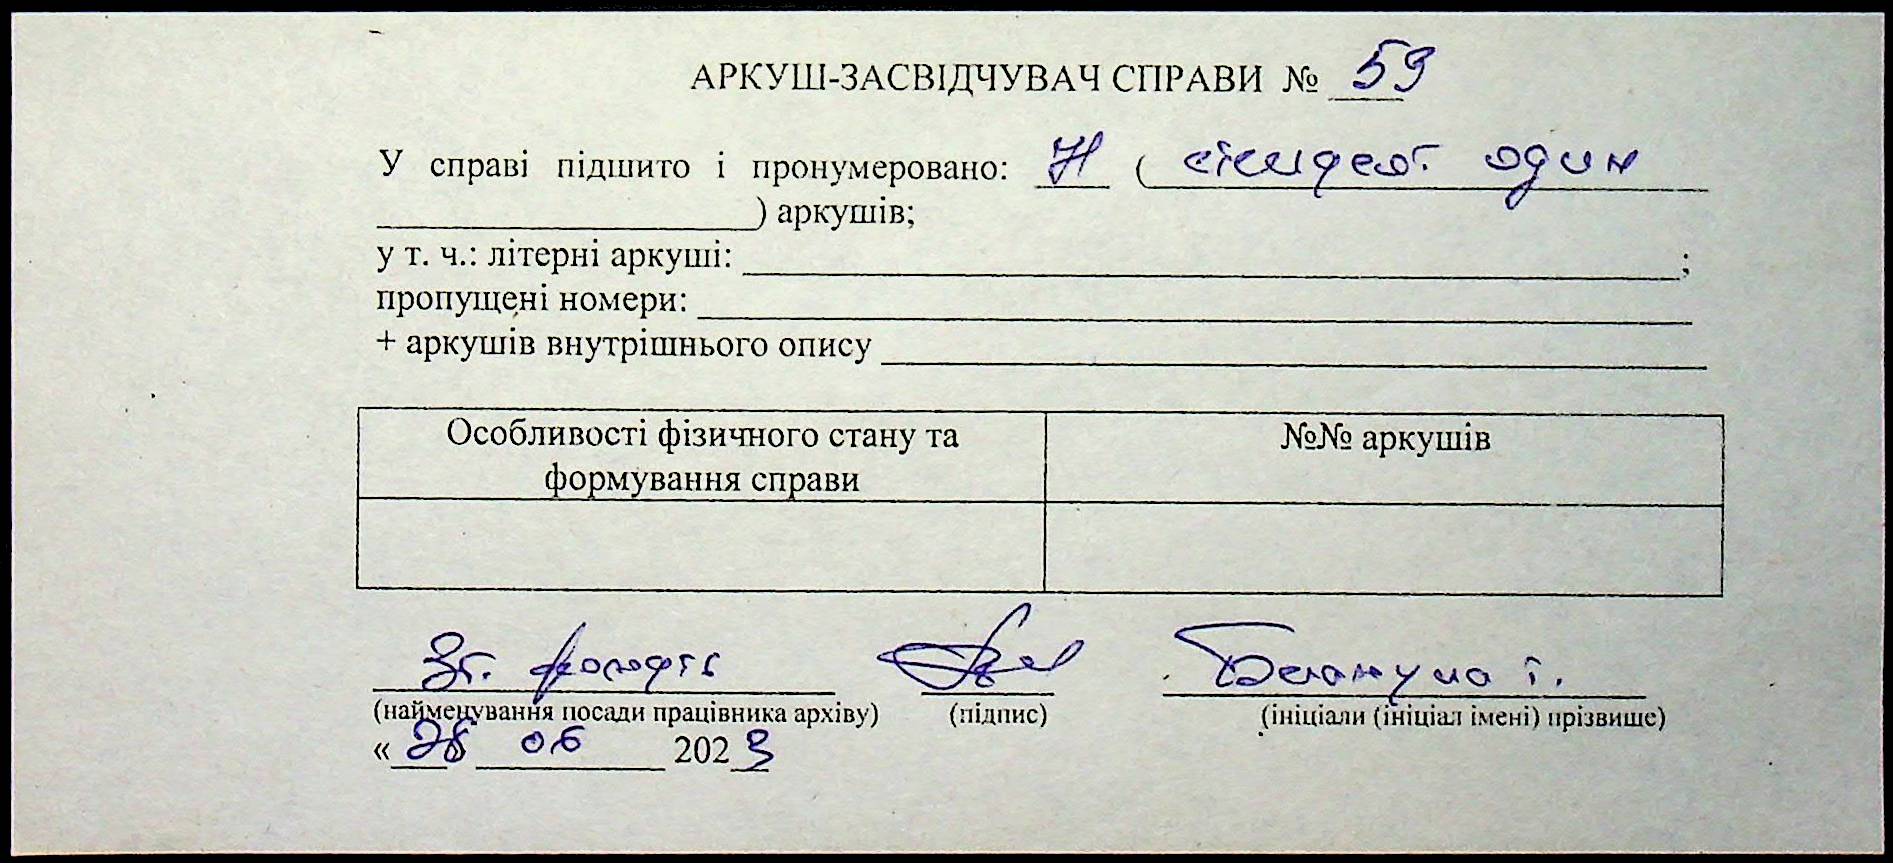 АРКУШ-ЗАСВІДЧУВАЧ СПРАВИ № 59
У справі підшито і пронумеровано: 71 ( сімдесят один
) аркушів;
у т. ч.: літерні аркуші: ;
пропущені номери:
+ аркушів внутрішнього опису
Особливості фізичного стану та
формування справи
№№ аркушів
Зб. фондів
(найменування посади працівника архіву) (підпис) (ініціали (ініціал імені) прізвище)
«28 06 2023